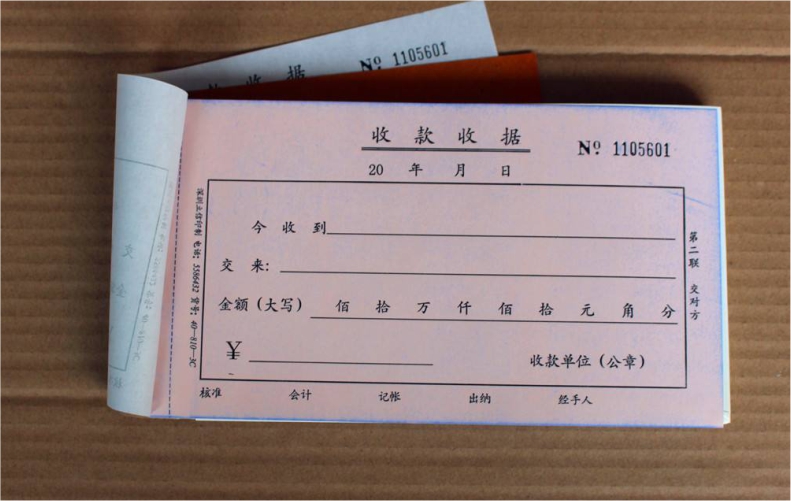 款 收 据 Nº 1105601
收 款 收 据 Nº 1105601
20 年 月 日
今 收 到
交 来:
金额(大写) 佰 拾 万 仟 佰 拾 元 角 分
¥
收款单位(公章)
核准 会计 记帐 出纳 经手人
第二联 交对方